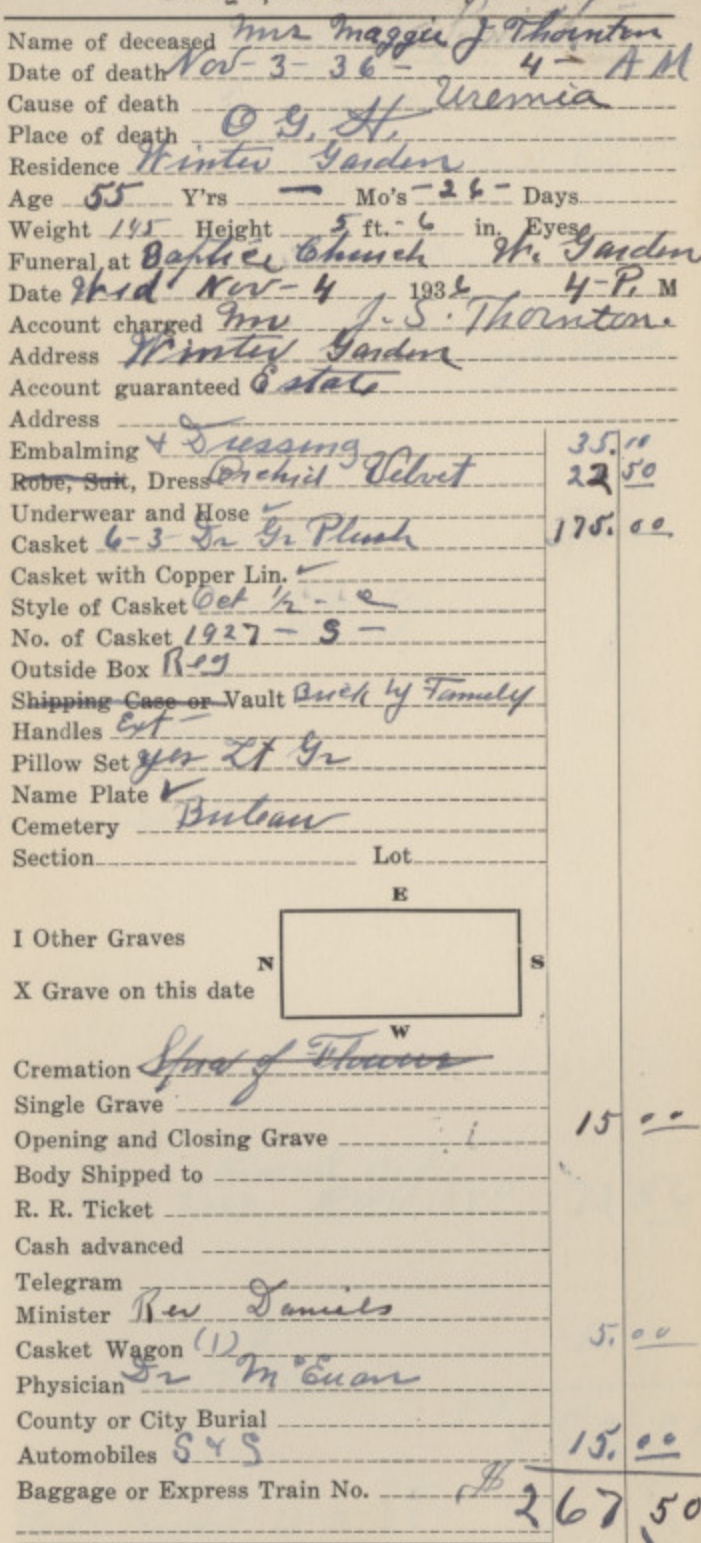 Name of deceased Mrs Maggie J Thornton
Date of death Nov - 3 - 36 - 4 - A M
Cause of death Uremia
Place of death O. G. H.
Residence Winter Garden
Age 55 Y'rs — Mo's - 26 - Days
Weight 145 Height 5 ft. - 6 in. Eyes
Funeral at Baptice Church W. Garden
Date Wed Nov - 4 1936 4 - P. M
Account charged Mr J. S. Thornton.
Address Winter Garden
Account guaranteed Estate
Address
Embalming & Dressing 35.00
Robe, Suit, Dress Orchid Velvet 22 50
Underwear and Hose ✓
Casket 6-3 Dr Gr Plush 175. 00
Casket with Copper Lin. ✓
Style of Casket Oct 1/2 -
No. of Casket 1927 - S -
Outside Box Reg
Shipping Case or Vault Brick by Family
Handles Ext -
Pillow Set yes Lt Gr
Name Plate ✓
Cemetery
Section Lot
E
I Other Graves
N S
X Grave on this date
W
Cremation Spra of Flowers
Single Grave
Opening and Closing Grave 15 00
Body Shipped to
R. R. Ticket
Cash advanced
Telegram
Minister Rev Daniels
Casket Wagon (1) 5. 00
Physician Dr McEuan
County or City Burial
Automobiles S & S 15. 00
Baggage or Express Train No. $ 267 50